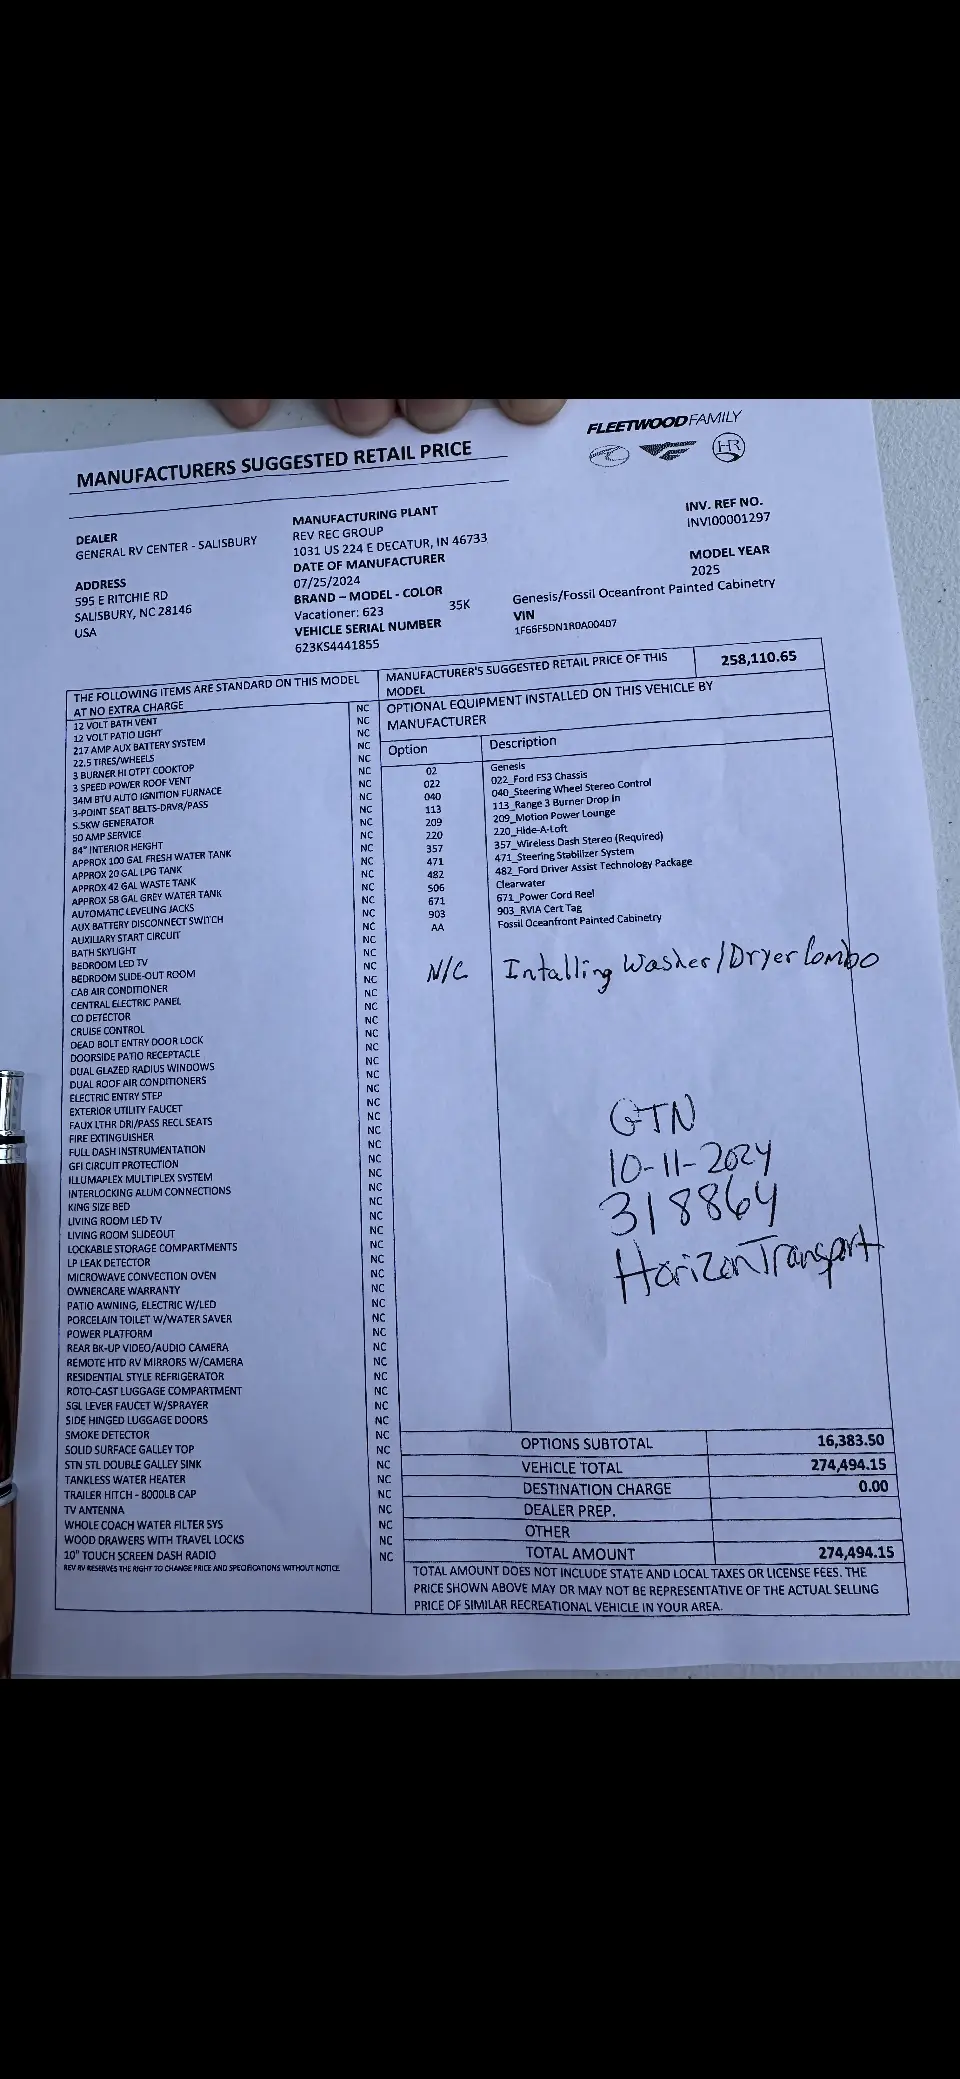 FLEETWOOD FAMILY
HR
MANUFACTURERS SUGGESTED RETAIL PRICE
DEALER
GENERAL RV CENTER - SALISBURY
ADDRESS
595 E RITCHIE RD
SALISBURY, NC 28146
USA
MANUFACTURING PLANT
REV REC GROUP
1031 US 224 E DECATUR, IN 46733
DATE OF MANUFACTURER
07/25/2024
BRAND – MODEL - COLOR
Vacationer: 623 35K Genesis/Fossil Oceanfront Painted Cabinetry
VEHICLE SERIAL NUMBER
623KS4441855
INV. REF NO.
INVI00001297
MODEL YEAR
2025
VIN
1F66F5DN1R0A00407
THE FOLLOWING ITEMS ARE STANDARD ON THIS MODEL
AT NO EXTRA CHARGE
12 VOLT BATH VENT NC
12 VOLT PATIO LIGHT NC
217 AMP AUX BATTERY SYSTEM NC
22.5 TIRES/WHEELS NC
3 BURNER HI OTPT COOKTOP NC
3 SPEED POWER ROOF VENT NC
34M BTU AUTO IGNITION FURNACE NC
3-POINT SEAT BELTS-DRVR/PASS NC
5.5KW GENERATOR NC
50 AMP SERVICE NC
84" INTERIOR HEIGHT NC
APPROX 100 GAL FRESH WATER TANK NC
APPROX 20 GAL LPG TANK NC
APPROX 42 GAL WASTE TANK NC
APPROX 58 GAL GREY WATER TANK NC
AUTOMATIC LEVELING JACKS NC
AUX BATTERY DISCONNECT SWITCH NC
AUXILIARY START CIRCUIT NC
BATH SKYLIGHT NC
BEDROOM LED TV NC
BEDROOM SLIDE-OUT ROOM NC
CAB AIR CONDITIONER NC
CENTRAL ELECTRIC PANEL NC
CO DETECTOR NC
CRUISE CONTROL NC
DEAD BOLT ENTRY DOOR LOCK NC
DOORSIDE PATIO RECEPTACLE NC
DUAL GLAZED RADIUS WINDOWS NC
DUAL ROOF AIR CONDITIONERS NC
ELECTRIC ENTRY STEP NC
EXTERIOR UTILITY FAUCET NC
FAUX LTHR DRI/PASS RECL SEATS NC
FIRE EXTINGUISHER NC
FULL DASH INSTRUMENTATION NC
GFI CIRCUIT PROTECTION NC
ILLUMAPLEX MULTIPLEX SYSTEM NC
INTERLOCKING ALUM CONNECTIONS NC
KING SIZE BED NC
LIVING ROOM LED TV NC
LIVING ROOM SLIDEOUT NC
LOCKABLE STORAGE COMPARTMENTS NC
LP LEAK DETECTOR NC
MICROWAVE CONVECTION OVEN NC
OWNERCARE WARRANTY NC
PATIO AWNING, ELECTRIC W/LED NC
PORCELAIN TOILET W/WATER SAVER NC
POWER PLATFORM NC
REAR BK-UP VIDEO/AUDIO CAMERA NC
REMOTE HTD RV MIRRORS W/CAMERA NC
RESIDENTIAL STYLE REFRIGERATOR NC
ROTO-CAST LUGGAGE COMPARTMENT NC
SGL LEVER FAUCET W/SPRAYER NC
SIDE HINGED LUGGAGE DOORS NC
SMOKE DETECTOR NC
SOLID SURFACE GALLEY TOP NC
STN STL DOUBLE GALLEY SINK NC
TANKLESS WATER HEATER NC
TRAILER HITCH - 8000LB CAP NC
TV ANTENNA NC
WHOLE COACH WATER FILTER SYS NC
WOOD DRAWERS WITH TRAVEL LOCKS NC
10" TOUCH SCREEN DASH RADIO NC
REV RV RESERVES THE RIGHT TO CHANGE PRICE AND SPECIFICATIONS WITHOUT NOTICE
MANUFACTURER'S SUGGESTED RETAIL PRICE OF THIS
MODEL
258,110.65
OPTIONAL EQUIPMENT INSTALLED ON THIS VEHICLE BY
MANUFACTURER
Option Description
02 Genesis
022 022_Ford F53 Chassis
040 040_Steering Wheel Stereo Control
113 113_Range 3 Burner Drop In
209 209_Motion Power Lounge
220 220_Hide-A-Loft
357 357_Wireless Dash Stereo (Required)
471 471_Steering Stabilizer System
482 482_Ford Driver Assist Technology Package
506 Clearwater
671 671_Power Cord Reel
903 903_RVIA Cert Tag
AA Fossil Oceanfront Painted Cabinetry
N/C Intalling Washer/Dryer Combo
GTN
10-11-2024
318864
Horizon Transport
OPTIONS SUBTOTAL 16,383.50
VEHICLE TOTAL 274,494.15
DESTINATION CHARGE 0.00
DEALER PREP.
OTHER
TOTAL AMOUNT 274,494.15
TOTAL AMOUNT DOES NOT INCLUDE STATE AND LOCAL TAXES OR LICENSE FEES. THE
PRICE SHOWN ABOVE MAY OR MAY NOT BE REPRESENTATIVE OF THE ACTUAL SELLING
PRICE OF SIMILAR RECREATIONAL VEHICLE IN YOUR AREA.